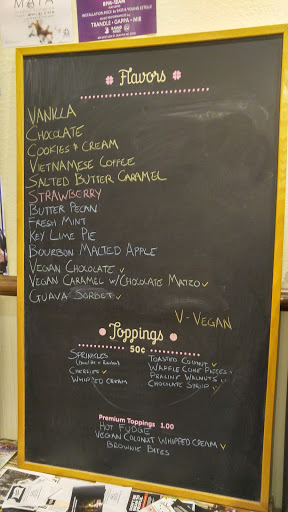 MAIA
8PM-12AM
TRANDLE · GAPPA · MIR
Flavors
VANILLA
CHOCOLATE
COOKIES & CREAM
VIETNAMESE COFFEE
SALTED BUTTER CARAMEL
STRAWBERRY
BUTTER PECAN
FRESH MINT
KEY LIME PIE
BOURBON MALTED APPLE
VEGAN CHOCOLATE ✓
VEGAN CARAMEL W/CHOCOLATE MATZO ✓
GUAVA SORBET ✓
V-VEGAN
Toppings
50¢
SPRINKLES
CHERRIES ✓
WHIPPED CREAM
TOASTED COCONUT ✓
WAFFLE CONE PIECES
PRALINE WALNUTS
CHOCOLATE SYRUP ✓
Premium Toppings 1.00
HOT FUDGE
VEGAN COCONUT WHIPPED CREAM ✓
BROWNIE BITES